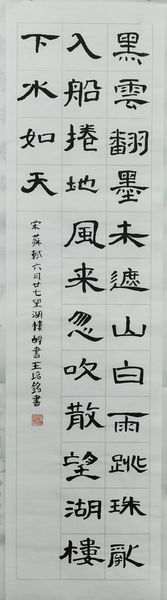 黑雲翻墨未遮山白雨跳珠亂
入船捲地風来忽吹散望湖樓
下水如天
宋蘇軾六月廿七望湖樓醉書王銘書